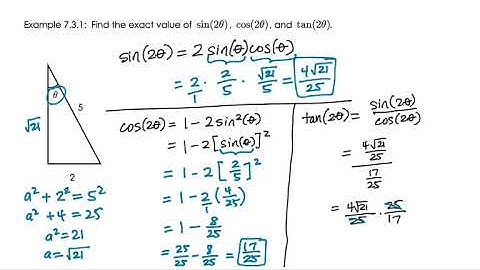 Example 7.3.1: Find the exact value of sin(2θ), cos(2θ), and tan(2θ).
sin(2θ) = 2 sin(θ)cos(θ)
= 2/1 · 2/5 · √21/5 = 4√21/25
θ
5
√21
2
a² + 2² = 5²
a² + 4 = 25
a² = 21
a = √21
cos(2θ) = 1 - 2sin²(θ)
= 1 - 2[sin(θ)]²
= 1 - 2[2/5]²
= 1 - 2/1(4/25)
= 1 - 8/25
= 25/25 - 8/25 = 17/25
tan(2θ) = sin(2θ)/cos(2θ)
= (4√21/25)/(17/25)
= 4√21/25 · 25/17